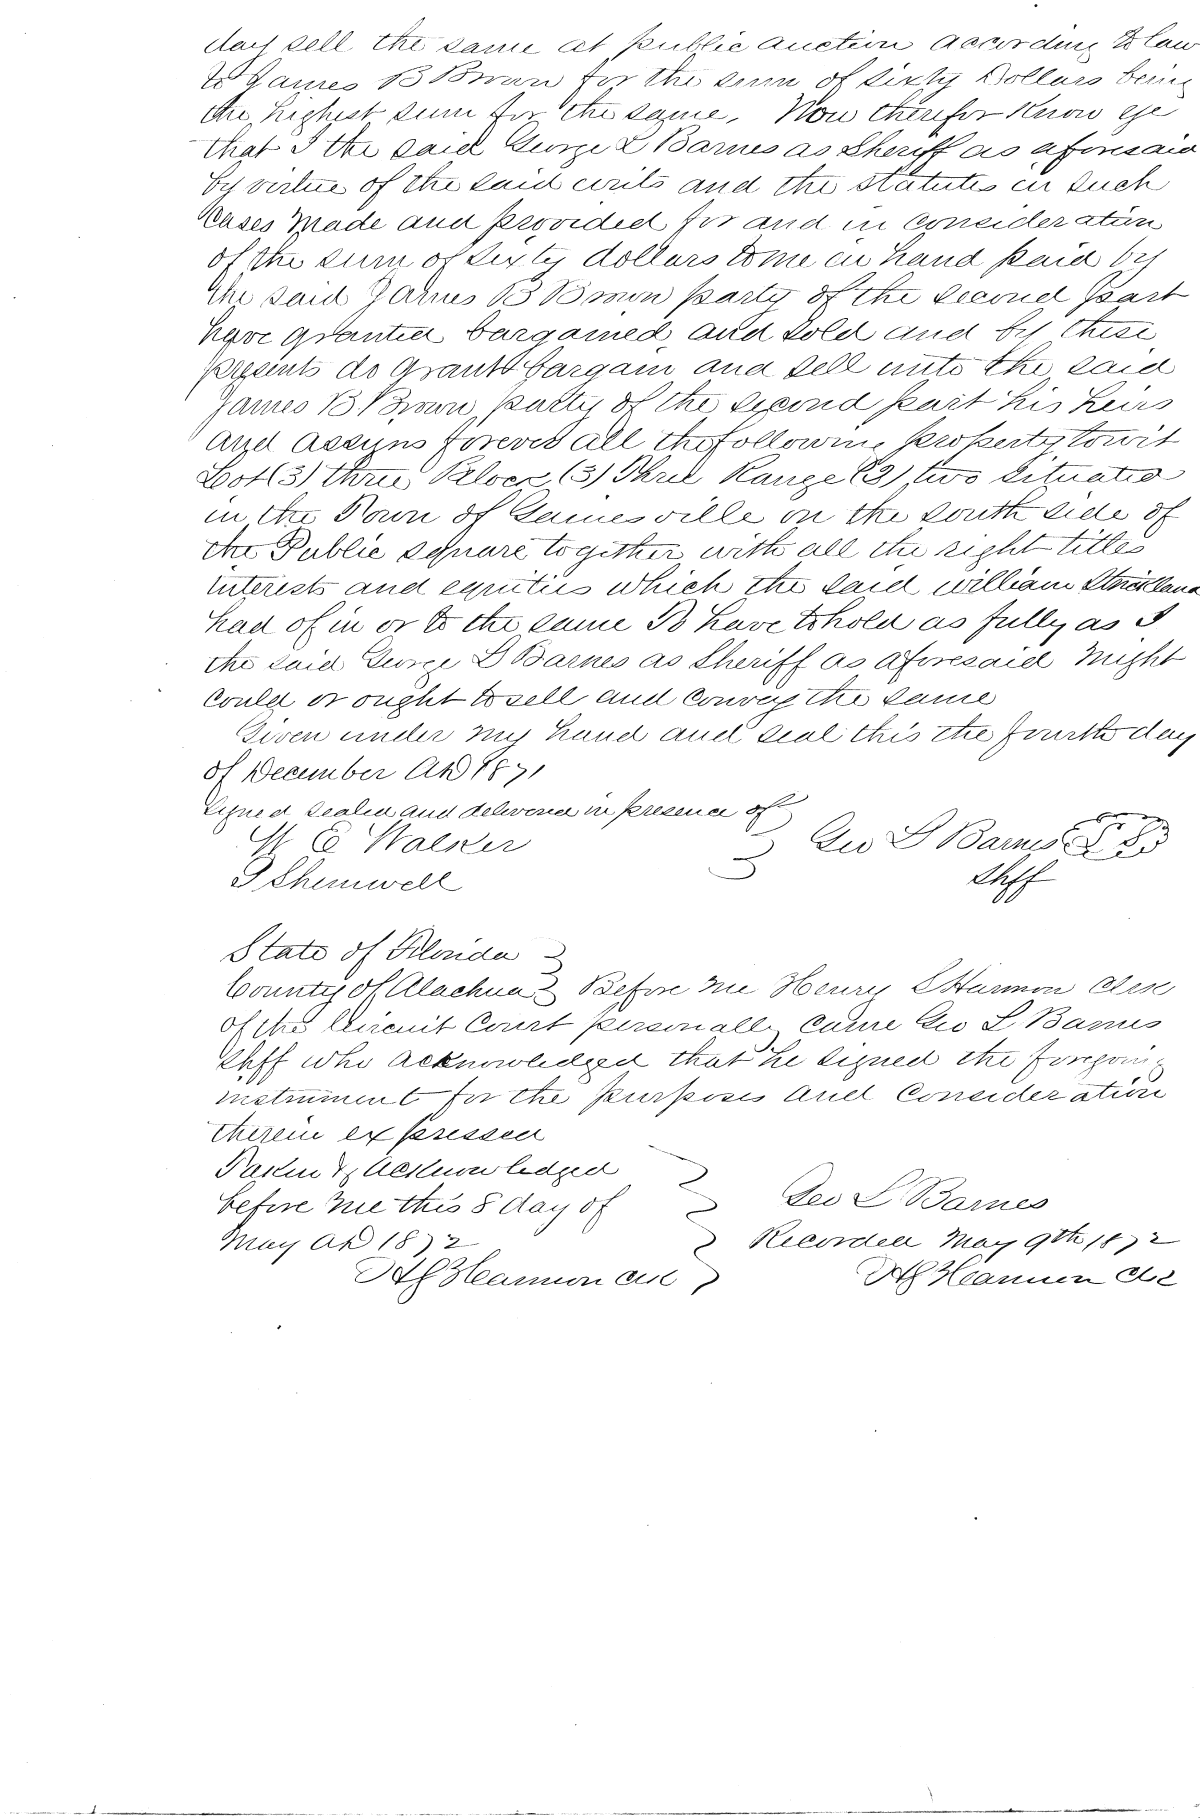 day sell the same at public auction according to law
to James B Brown for the sum of sixty Dollars being
the highest sum for the same. Now therefor Know ye
that I the said George L Barnes as Sheriff as aforesaid
by virtue of the said writs and the statutes in such
Cases Made and provided for and in consideration
of the sum of sixty dollars to me in hand paid by
the said James B Brown party of the second part
have granted bargained and sold and by these
presents do grant bargain and sell unto the said
James B. Brown party of the second part his heirs
and assigns forever all the following property towit
Lot (3) three Block (3) Three Range (2) two situated
in the Town of Gainesville on the south side of
the Public square together with all the right titles
interests and equities which the said William Strickland
had of in or to the same To have to hold as fully as I
the said George L Barnes as Sheriff as aforesaid Might
could or ought to sell and convey the same
Given under my hand and seal this the fourth day
of December AD 1871
Signed sealed and delivered in presence of
W E Walker Geo L Barnes L S
J Shemwell Shff
State of Florida
County of Alachua Before Me Henry S Harmon Clerk
of the Circuit Court personally came Geo L Barnes
Shff who acknowledged that he signed the foregoing
instrument for the purposes and consideration
therein expressed
Taken & Acknowledged
before me this 8 day of Geo L Barnes
May AD 1872 Recorded May 9th 1872
H S Harmon Clk H S Harmon Clk